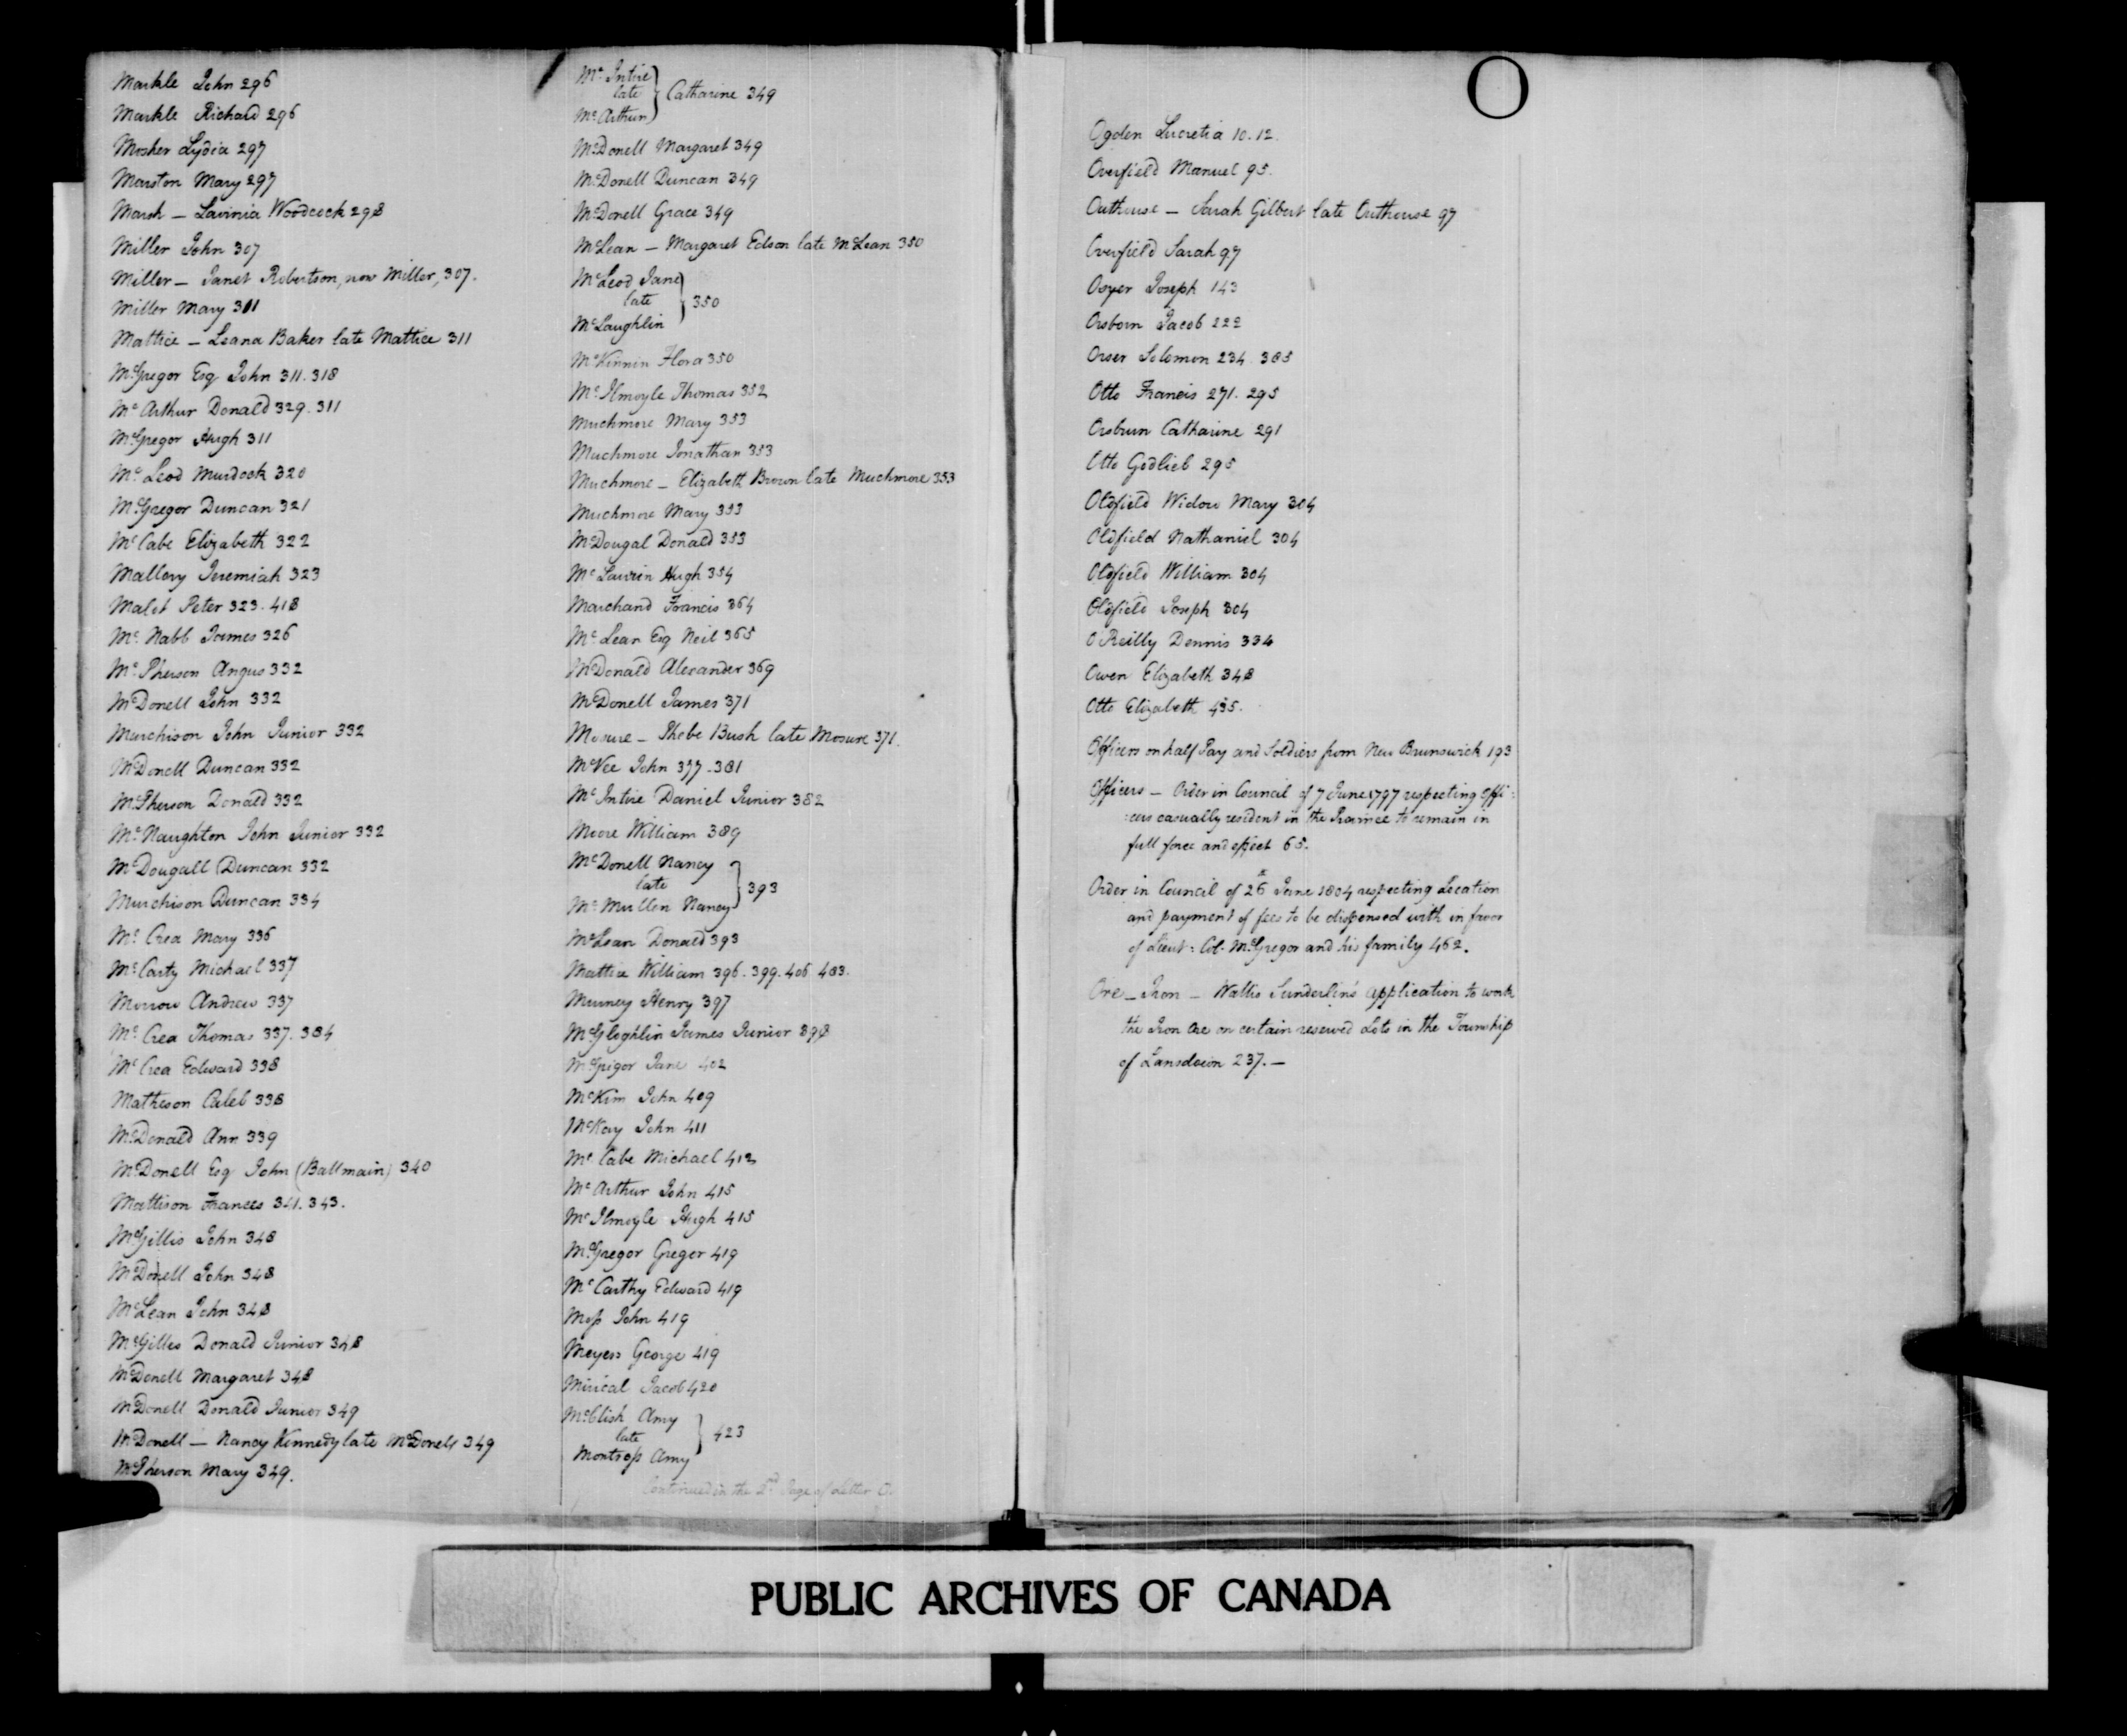 Markle John 296
Markle Richard 296
Mosher Lydia 297
Marston Mary 297
Marsh — Lavinia Woodcock 298
Miller John 307
Miller — Janet Robertson, now Miller, 307.
Miller Mary 311
Mattice — Leana Baker late Mattice 311
McGregor Esq John 311. 318
Mc Arthur Donald 329. 311
McGregor Hugh 311
Mc Leod Murdock 320
McGregor Duncan 321
McCabe Elizabeth 322
Mallory Jeremiah 323
Malot Peter 323. 418
Mc Nabb James 326
Mc Pherson Angus 332
McDonell John 332
Murchison John Junior 332
McDonell Duncan 332
McPherson Donald 332
Mc Naughton John Junior 332
McDougall Duncan 332
Murchison Duncan 334
Mc Crea Mary 336
Mc Carty Michael 337
Morrow Andrew 337
Mc Crea Thomas 337. 384
Mc Crea Edward 338
Matheson Caleb 338
McDonald Ann 339
McDonell Esq John (Ballmain) 340
Mattison Frances 341. 343.
McGillis John 348
McDonell John 348
McLean John 348
McGilles Donald Junior 348
McDonell Margaret 348
McDonell Donald Junior 349
McDonell — Nancy Kennedy late McDonell 349
McPherson Mary 349.
Mc Intire
late } Catharine 349
Mc Arthur
McDonell Margaret 349
McDonell Duncan 349
McDonell Grace 349
McLean — Margaret Edson late McLean 350
McLeod Jane
late } 350
McLaughlin
McKinnin Flora 350
Mc Ilmoyle Thomas 352
Muchmore Mary 353
Muchmore Jonathan 353
Muchmore — Elizabeth Brown late Muchmore 353
Muchmore Mary 353
McDougal Donald 353
Mc Laurin Hugh 354
Marchand Francis 364
Mc Lean Esq Neil 365
McDonald Alexander 369
McDonell James 371
Mosure — Phebe Bush late Mosure 371.
McVee John 377. 381
Mc Intire Daniel Junior 382
Moore William 389
McDonell Nancy
late } 393
Mc Mullen Nancy
McLean Donald 393
Mattice William 396. 399. 406. 483.
Murney Henry 397
McGloghlin James Junior 398
McGrigor Jane 402
McKim John 409
McKay John 411
Mc Cabe Michael 412
Mc Arthur John 415
Mc Ilmoyle Hugh 415
McGregor Greger 419
Mc Carthy Edward 419
Moss John 419
Meyers George 419
Mirical Jacob 420
McClish Amy
late } 423
Montross Amy
Continued in the 2d Page of Letter O.
O
Ogden Lucretia 10. 12.
Overfield Manuel 95.
Outhouse — Sarah Gilbert late Outhouse 97
Overfield Sarah 97
Osyer Joseph 143
Osborn Jacob 222
Orser Solomon 234. 385
Otto Francis 271. 295
Osburn Catharine 291
Otto Godlieb 295
Oldfield Widow Mary 304
Oldfield Nathaniel 304
Oldfield William 304
Oldfield Joseph 304
O'Reilly Dennis 334
Owen Elizabeth 348
Otto Elizabeth 435.
Officers on half Pay and Soldiers from New Brunswick 193
Officers — Order in Council of 7 June 1797 respecting Offi:
:cers casually resident in the Province to remain in
full force and effect 65.
Order in Council of 26th June 1804 respecting Location
and payment of fees to be dispensed with in favor
of Lieut: Col. McGregor and his family 462.
Ore — Iron — Wallis Sunderlin's application to work
the Iron Ore on certain reserved Lots in the Township
of Lansdown 237. —
PUBLIC ARCHIVES OF CANADA